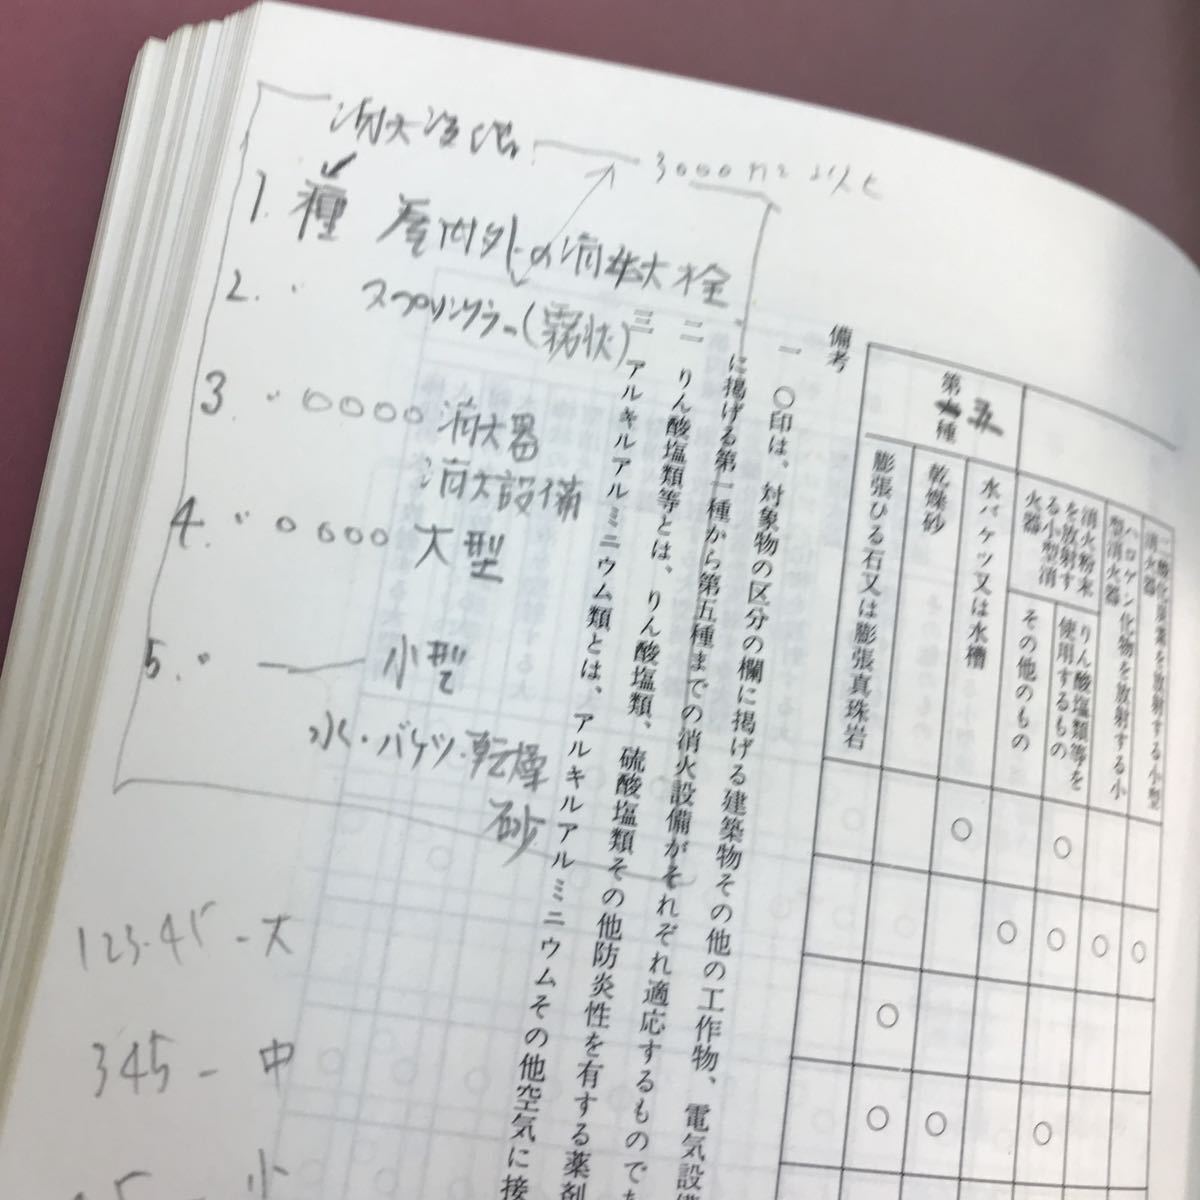 3000m2以上
1. 種 屋内外の消火栓
2. 〃 スプリンクラー(霧状)
3. 〃 〇〇〇〇 消火器
消火設備
4. 〃 〇〇〇〇 大型
5. 〃 ― 小型
水・バケツ・乾燥
砂
12345 - 大
345 - 中
5 - 小
第五種
消火器
ハロゲン化物を放射する小型消火器
消火粉末を放射する小型消火器
りん酸塩類等を使用するもの
その他のもの
水バケツ又は水槽
乾燥砂
膨張ひる石又は膨張真珠岩
備考
一 〇印は、対象物の区分の欄に掲げる建築物その他の工作物、電気設備
に掲げる第一種から第五種までの消火設備がそれぞれ適応するもので
二 りん酸塩類等とは、りん酸塩類、硫酸塩類その他防炎性を有する薬剤
三 アルキルアルミニウム類とは、アルキルアルミニウムその他空気に接